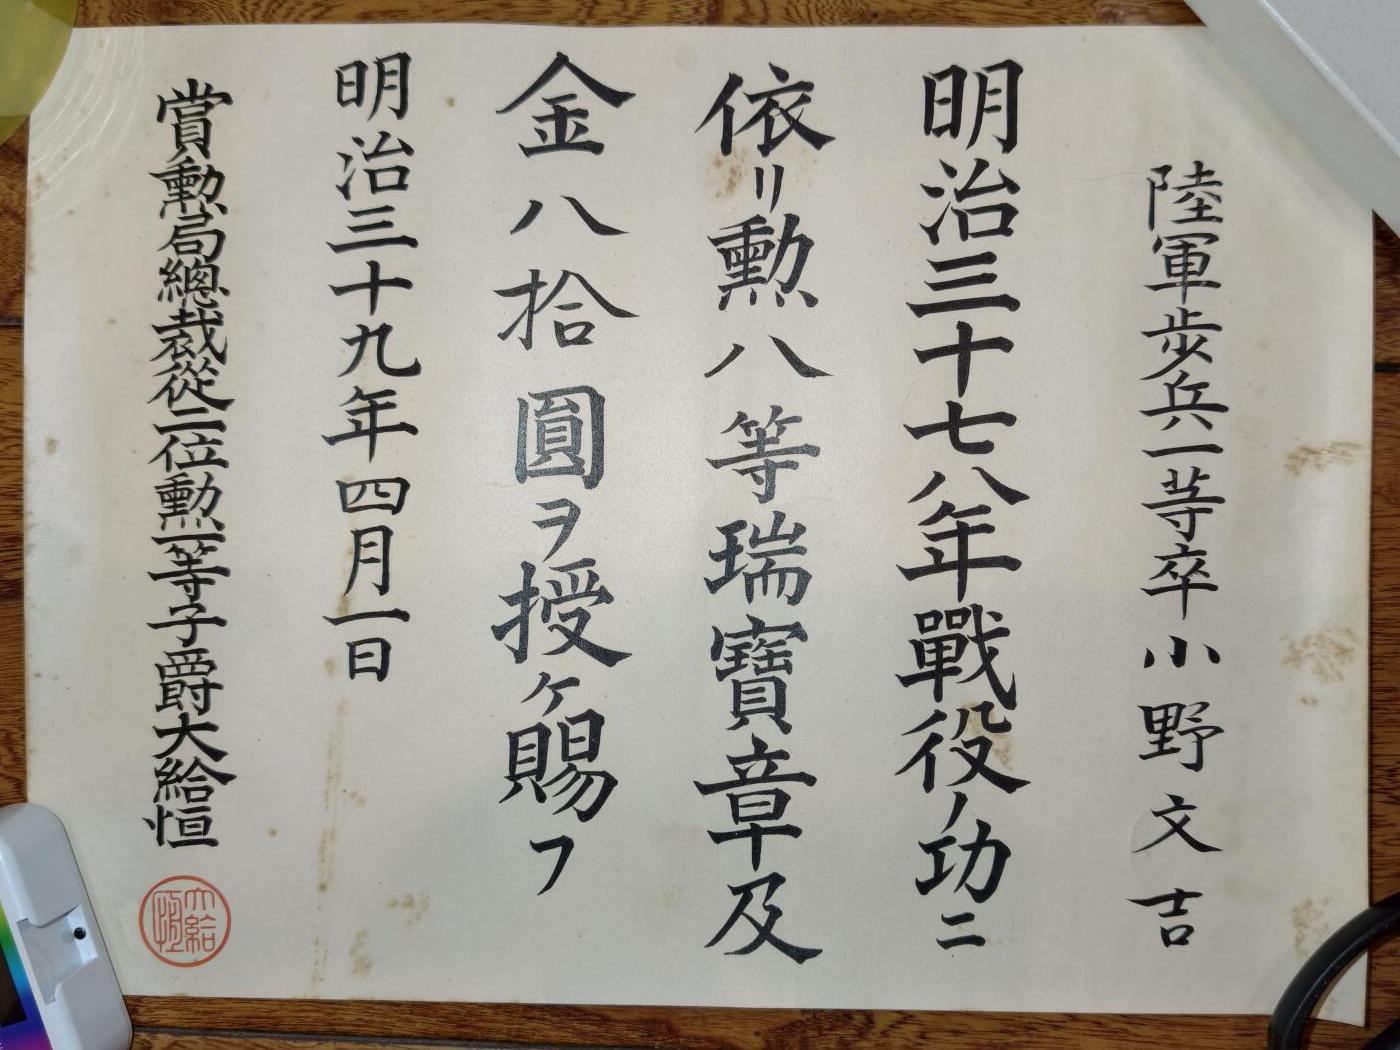 陸軍歩兵一等卒小野文吉
明治三十七八年戰役ノ功ニ
依リ勲八等瑞寶章及
金八拾圓ヲ授ケ賜フ
明治三十九年四月一日
賞勲局總裁從二位勲一等子爵大給恒
大給恒